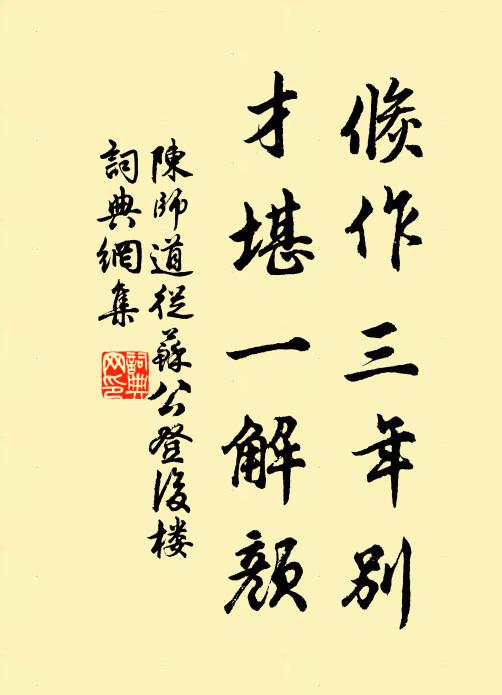 倐作三年别
才堪一解顔
陳師道從蘇公登後楼
詞典網集
詞典
网印